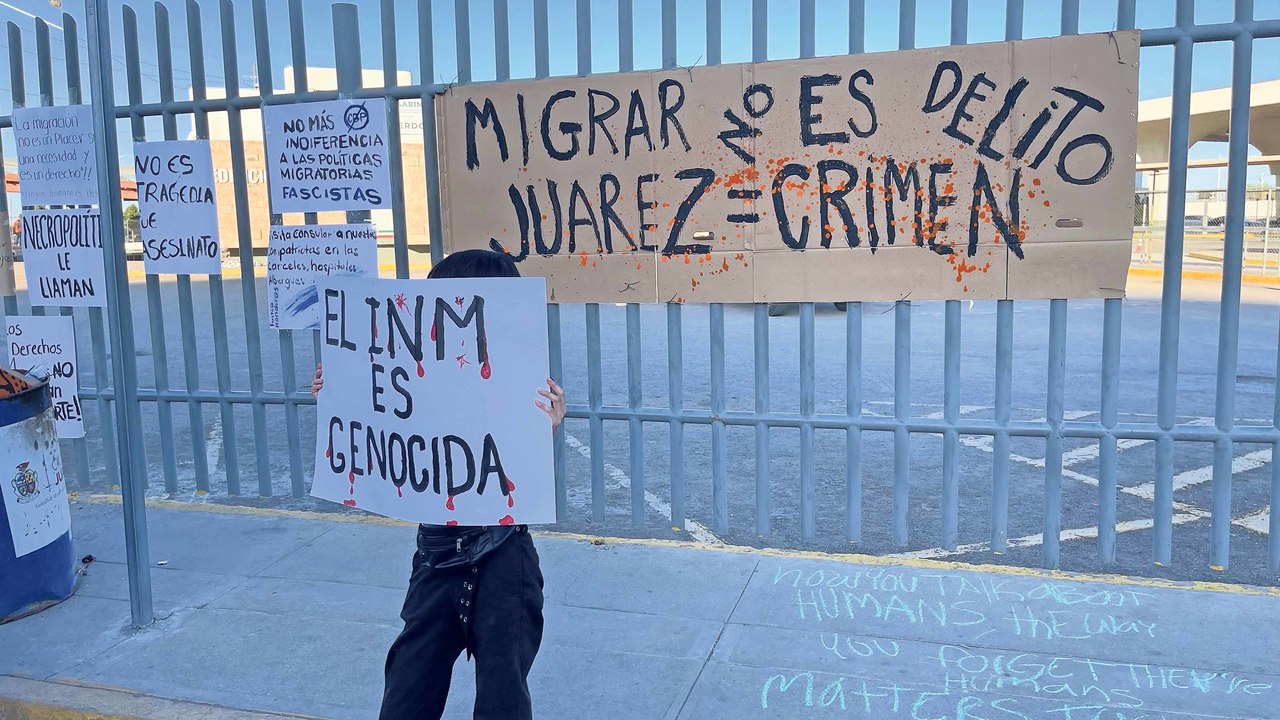 La migración
no es un Placer si
una necesidad y
es un derecho!!
NECROPOLÍTI
LE
LLAMAN
NO ES
TRAGEDIA
UE
ASESINATO
NO MÁS
INDIFERENCIA
A LAS POLÍTICAS
MIGRATORIAS
FASCISTAS
consular a nuestr
patriotas en las
carceles, hospitales
os
Derechos
NO
an
RTE!
MIGRAR NO ES DELITO
JUAREZ = CRIMEN
EL INM
ES
GENOCIDA
how you TALK aBOUT
HUMANS, the way
you FORGET THEY'RE
Humans
MaTTERS TO